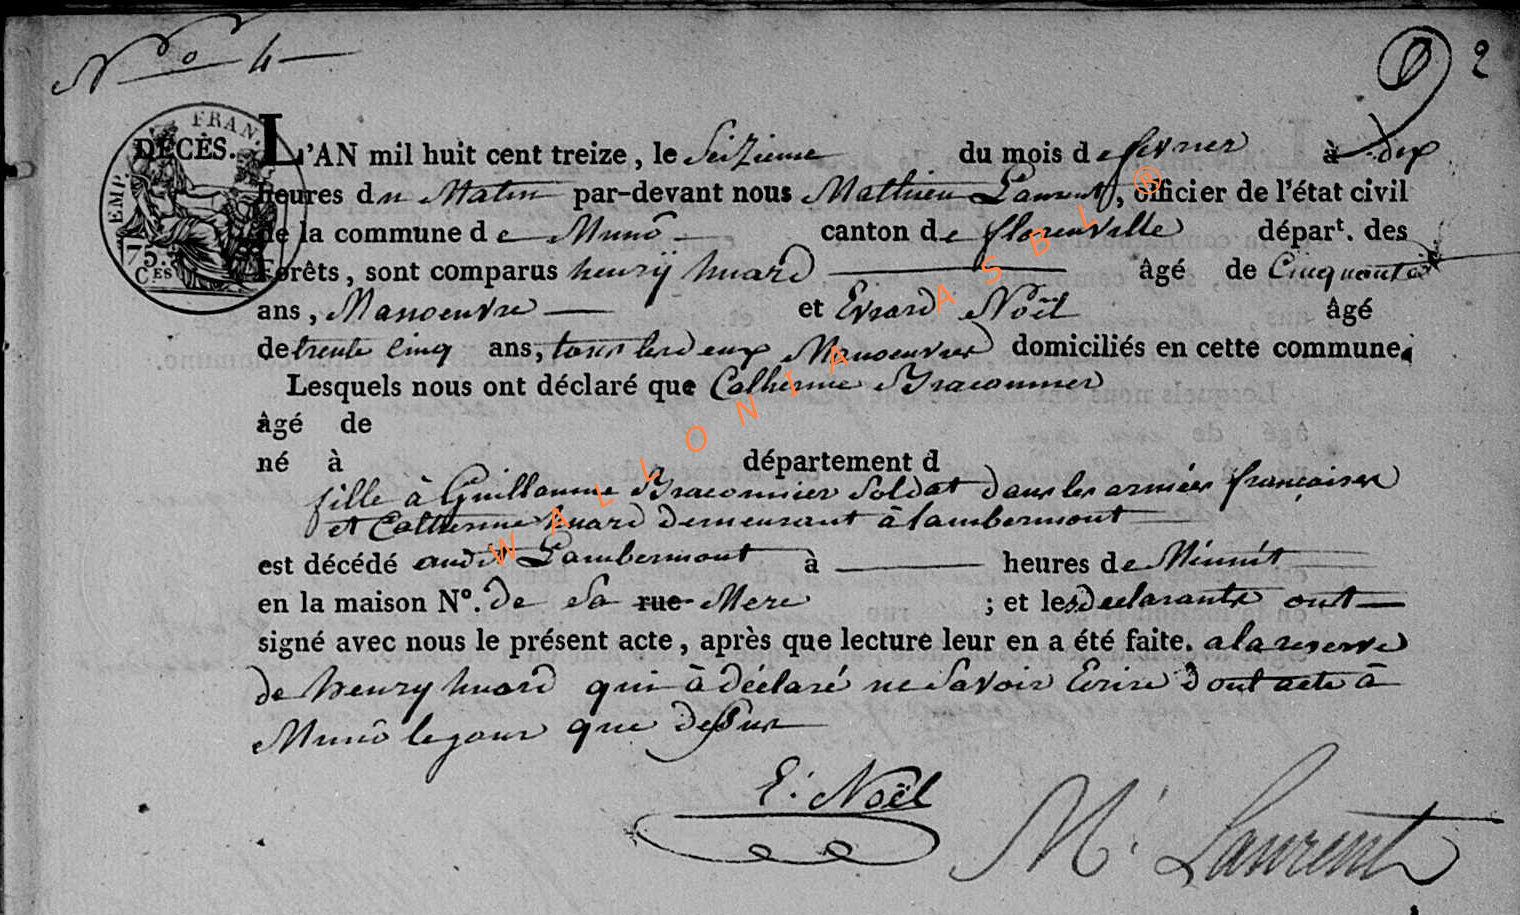 N° 4
2
EMP. FRAN.
75. CES
DÉCÈS. L'AN mil huit cent treize, le Seizieme du mois de fevrier à dix
heures du Matin par-devant nous Mathieu Laurent, officier de l'état civil
de la commune de Munô canton de florenville départ. des
Forêts, sont comparus henrÿ huard âgé de Cinquante
ans, Manoeuvre et Evrard Noël âgé
de trente Cinq ans, tous les deux Manoeuvres domiciliés en cette commune.
Lesquels nous ont déclaré que Catherine Braconnier
âgé de
né à département d
fille à Guillaume Braconnier Soldat dans les armées françaises
et Catherine huard demeurant à lambermont
est décédé audit Lambermont à heures de Minuit
en la maison N°. de Sa rue Mere ; et les declarants ont
signé avec nous le présent acte, après que lecture leur en a été faite. a la reserve
de henry huard qui à déclaré ne Savoir Ecrire dont acte à
Munô le jour que dessus
E. Noël
M. Laurent
WALLONIA ASBL ®